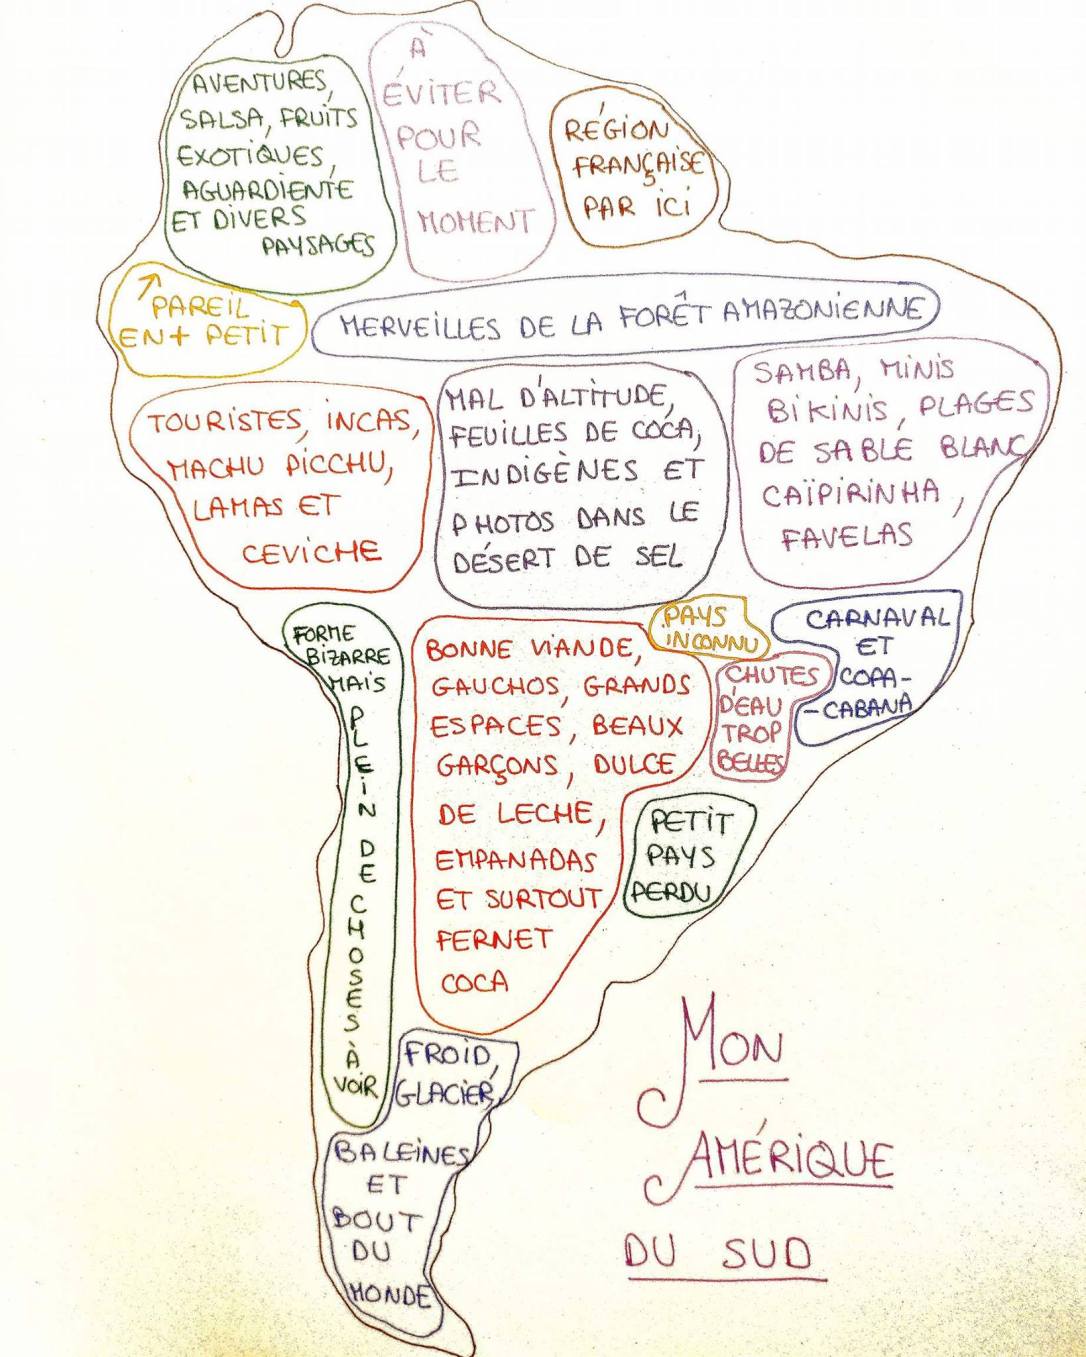 AVENTURES,
SALSA, FRUITS
EXOTIQUES,
AGUARDIENTE
ET DIVERS
PAYSAGES
À
ÉVITER
POUR
LE
MOMENT
RÉGION
FRANÇAISE
PAR ICI
PAREIL
EN + PETIT
MERVEILLES DE LA FORÊT AMAZONIENNE
TOURISTES, INCAS,
MACHU PICCHU,
LAMAS ET
CEVICHE
MAL D'ALTITUDE,
FEUILLES DE COCA,
INDIGÈNES ET
PHOTOS DANS LE
DÉSERT DE SEL
SAMBA, MINIS
BIKINIS, PLAGES
DE SABLE BLANC
CAÏPIRINHA,
FAVELAS
FORME
BIZARRE
MAIS
PLEIN DE CHOSES À
VOIR
BONNE VIANDE,
GAUCHOS, GRANDS
ESPACES, BEAUX
GARÇONS, DULCE
DE LECHE,
EMPANADAS
ET SURTOUT
FERNET
COCA
PAYS
INCONNU
CARNAVAL
ET
COPA-
-CABANA
CHUTES
D'EAU
TROP
BELLES
PETIT
PAYS
PERDU
FROID,
GLACIER,
BALEINES
ET
BOUT
DU
MONDE
MON
AMÉRIQUE
DU SUD